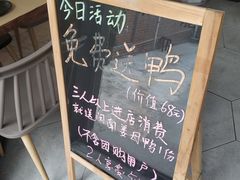 今日活动
免费送鸭
(价值68元)
三人以上进店消费
就送闽南姜母鸭1份
(不含团购用户)
2人套餐